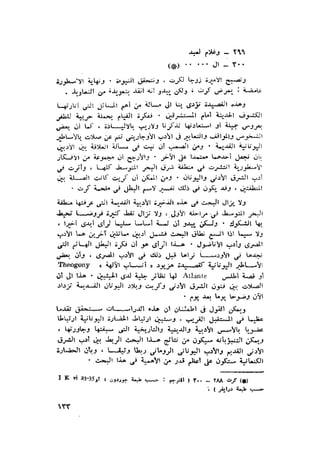 ٢٩٦ ــ وغلام لعبد
٣٠٠ ــ ال ٠٠٠ (*)
وتصبح الأميرة زوجا لكرت ، وتتحقق النبوءة . ونهاية الأسطورة
غامضة : يمرض كرت ، ولكن يبدو أنه أنقذ بتعويذة من التعاويذ .
وهذه القصيدة تؤدي بنا الى مسألة من أهم المسائل التي أثارتها
الكشوف الحديثة أمام المستشرقين . ففكرة القيام بحملة حربية للظفر
بعروس جميلة أو استعادتها تذكرنا ولاريب بالإلياذة . كما أن بعض
الشخوص والمواقف والتعابير في الأدب الأوجاريتي تنم عن صلات بالأساطير
اليونانية القديمة . ومن الصعب أن نبت في مسألة العلاقة بين الأدبين
بأن نجعل أحدهما معتمدا على الآخر . والأرجح أن مجموعة من الأفكار
الأسطورية انتشرت في منطقة شرق البحر المتوسط كلها ، وأثرت في
أدب الشرق الأدنى واليونان . ومن الممكن أن كريت كانت الصلة بين
المنطقتين ، وقد يكون في ذلك تفسير لاسم البطل في ملحمة كرت .
ولا يزال البحث في هذه الذخيرة الأدبية القديمة التي عرفتها منطقة
البحر المتوسط في مراحله الأولى ، ولا تزال نقط كثيرة فروضا تحيط
بها الشكوك . ولكن يبدو أن لها أساسا سليما لرأي أبدي أخيرا ،
ولا سيما اذا اتسع نطاق البحث فشمل أدبين مماثلين آخرين هما الأدب
المصري وأدب الأناضول . هذا الرأي هو أن فكرة البطل الهائم التي
نجدها في الأوديسا نراها قبل ذلك في الأدب المصري ، وأن بعض
الأساطير اليونانية كقصيدة هزيود « أنساب الآلهة » Theogony
أو قصة أطلس Atlante لها نظائر جلية لدى الحيثيين . هذا الى أن
الصلات بين فنون الشرق الأدنى وكريت وبلاد اليونان القديمة تزداد
الآن وضوحا يوما بعد يوم .
ويمكن القول في اطمئنان ان هذه الدراسات ستحقق تقدما
عظيما في المستقبل القريب ، وستبين ارتباط الحضارة اليونانية ارتباطا
عضويا بالأسس الأدبية والدينية والتاريخية التي سبقتها وجاورتها ،
ويمكن التنبؤ بأنه سيكون من نتائج هذا البحث الربط بين أدب الشرق
الأدنى القديم والأدب اليوناني الروماني ربطا وثيقا ، وبأن الحضارة
الكنعانية ستكون على أعظم قدر من الأهمية في هذا البحث .
(*) كرت ٢٨٨ ــ ٣٠٠ ( المترجم : حسب طبعة جوردون I K vi 33-35 أو
حسب طبعة درايفر ) .
١٣٣